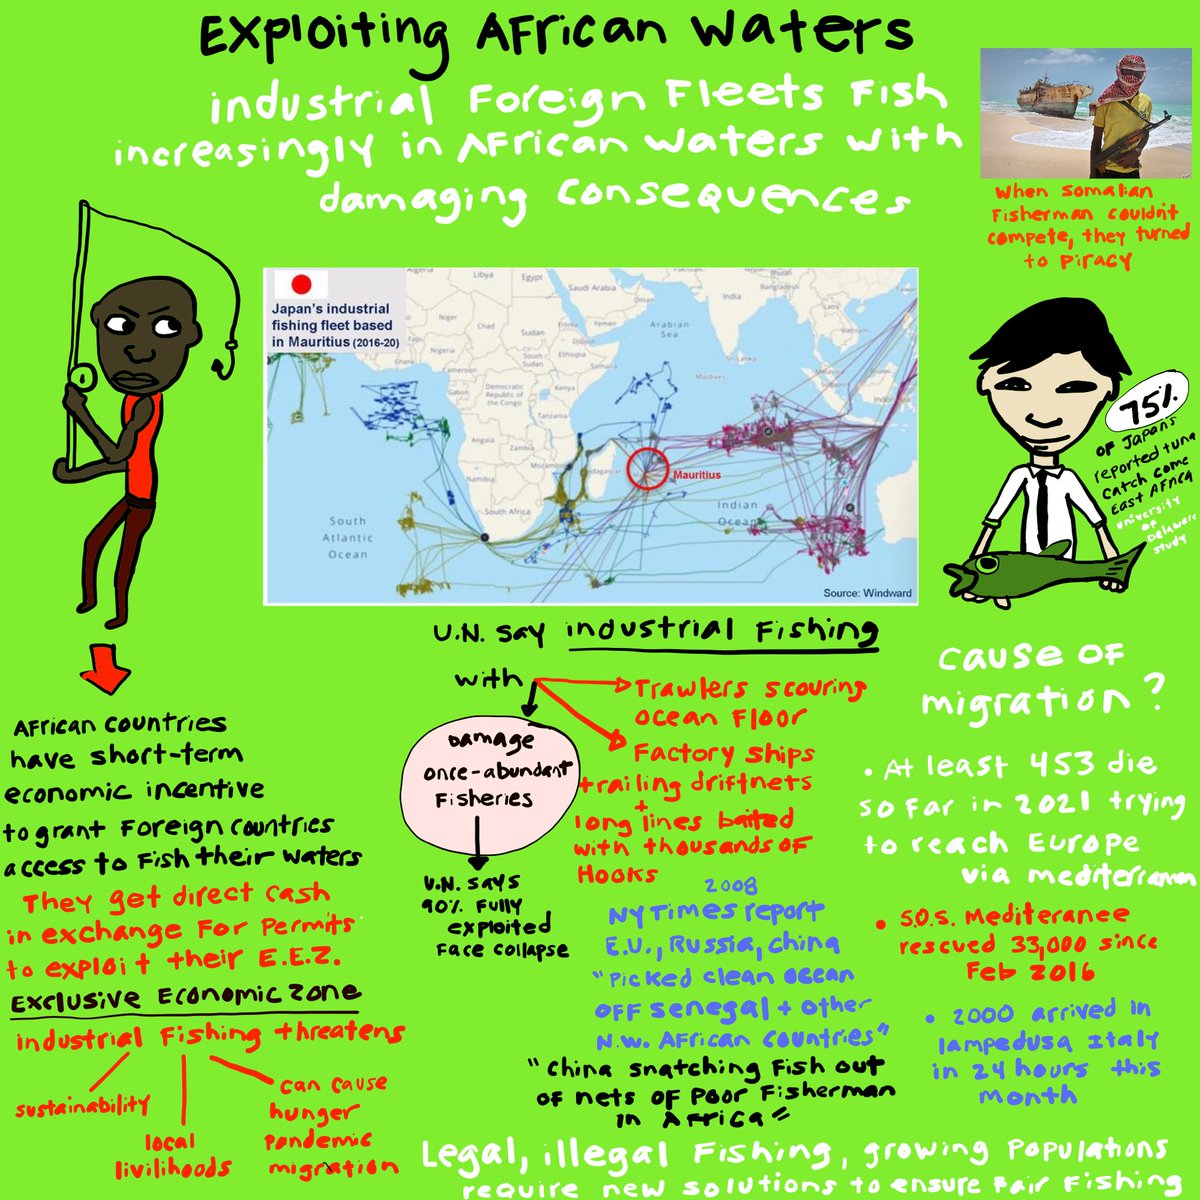 Exploiting African Waters
industrial Foreign Fleets Fish
increasingly in African waters with
damaging consequences
When Somalian
Fisherman couldn't
compete, they turned
to piracy
Japan's industrial
fishing fleet based
in Mauritius (2016-20)
Algeria
Libya
Egypt
Saudi Arabia
Oman
Pakistan
India
Bangladesh
Mali
Niger
Chad
Sudan
Eritrea
Yemen
Arabian
Sea
Nigeria
South
Sudan
Ethiopia
Somalia
Sri Lanka
Maldives
Malaysia
Vietnam
Cameroon
Gabon
Democratic
Republic of
the Congo
Kenya
Tanzania
Angola
Zambia
Mozambique
Madagascar
Namibia
South Africa
Indonesia
Mauritius
South
Atlantic
Ocean
Indian
Ocean
Source: Windward
75%
of Japan's
reported tuna
catch come
East Africa
University
of
Delaware
study
African countries
have short-term
economic incentive
to grant foreign countries
access to fish their waters
They get direct cash
in exchange for permits
to exploit their E.E.Z.
Exclusive Economic Zone
industrial Fishing threatens
sustainability
local
livilihoods
can cause
hunger
pandemic
migration
U.N. say industrial Fishing
with
Trawlers scouring
ocean floor
Factory ships
trailing driftnets
+
long lines baited
with thousands of
Hooks
Damage
once-abundant
Fisheries
U.N. says
90% Fully
exploited
Face collapse
2008
NY Times report
E.U., Russia, China
"Picked clean ocean
off Senegal + other
N.W. African countries"
"China snatching fish out
of nets of poor Fisherman
in Africa"
cause of
migration?
• At least 453 die
so far in 2021 trying
to reach Europe
via mediterranean
• S.O.S. Mediteranee
rescued 33,000 since
Feb 2016
• 2000 arrived in
lampedusa Italy
in 24 hours this
month
Legal, illegal Fishing, growing populations
require new solutions to ensure fair fishing